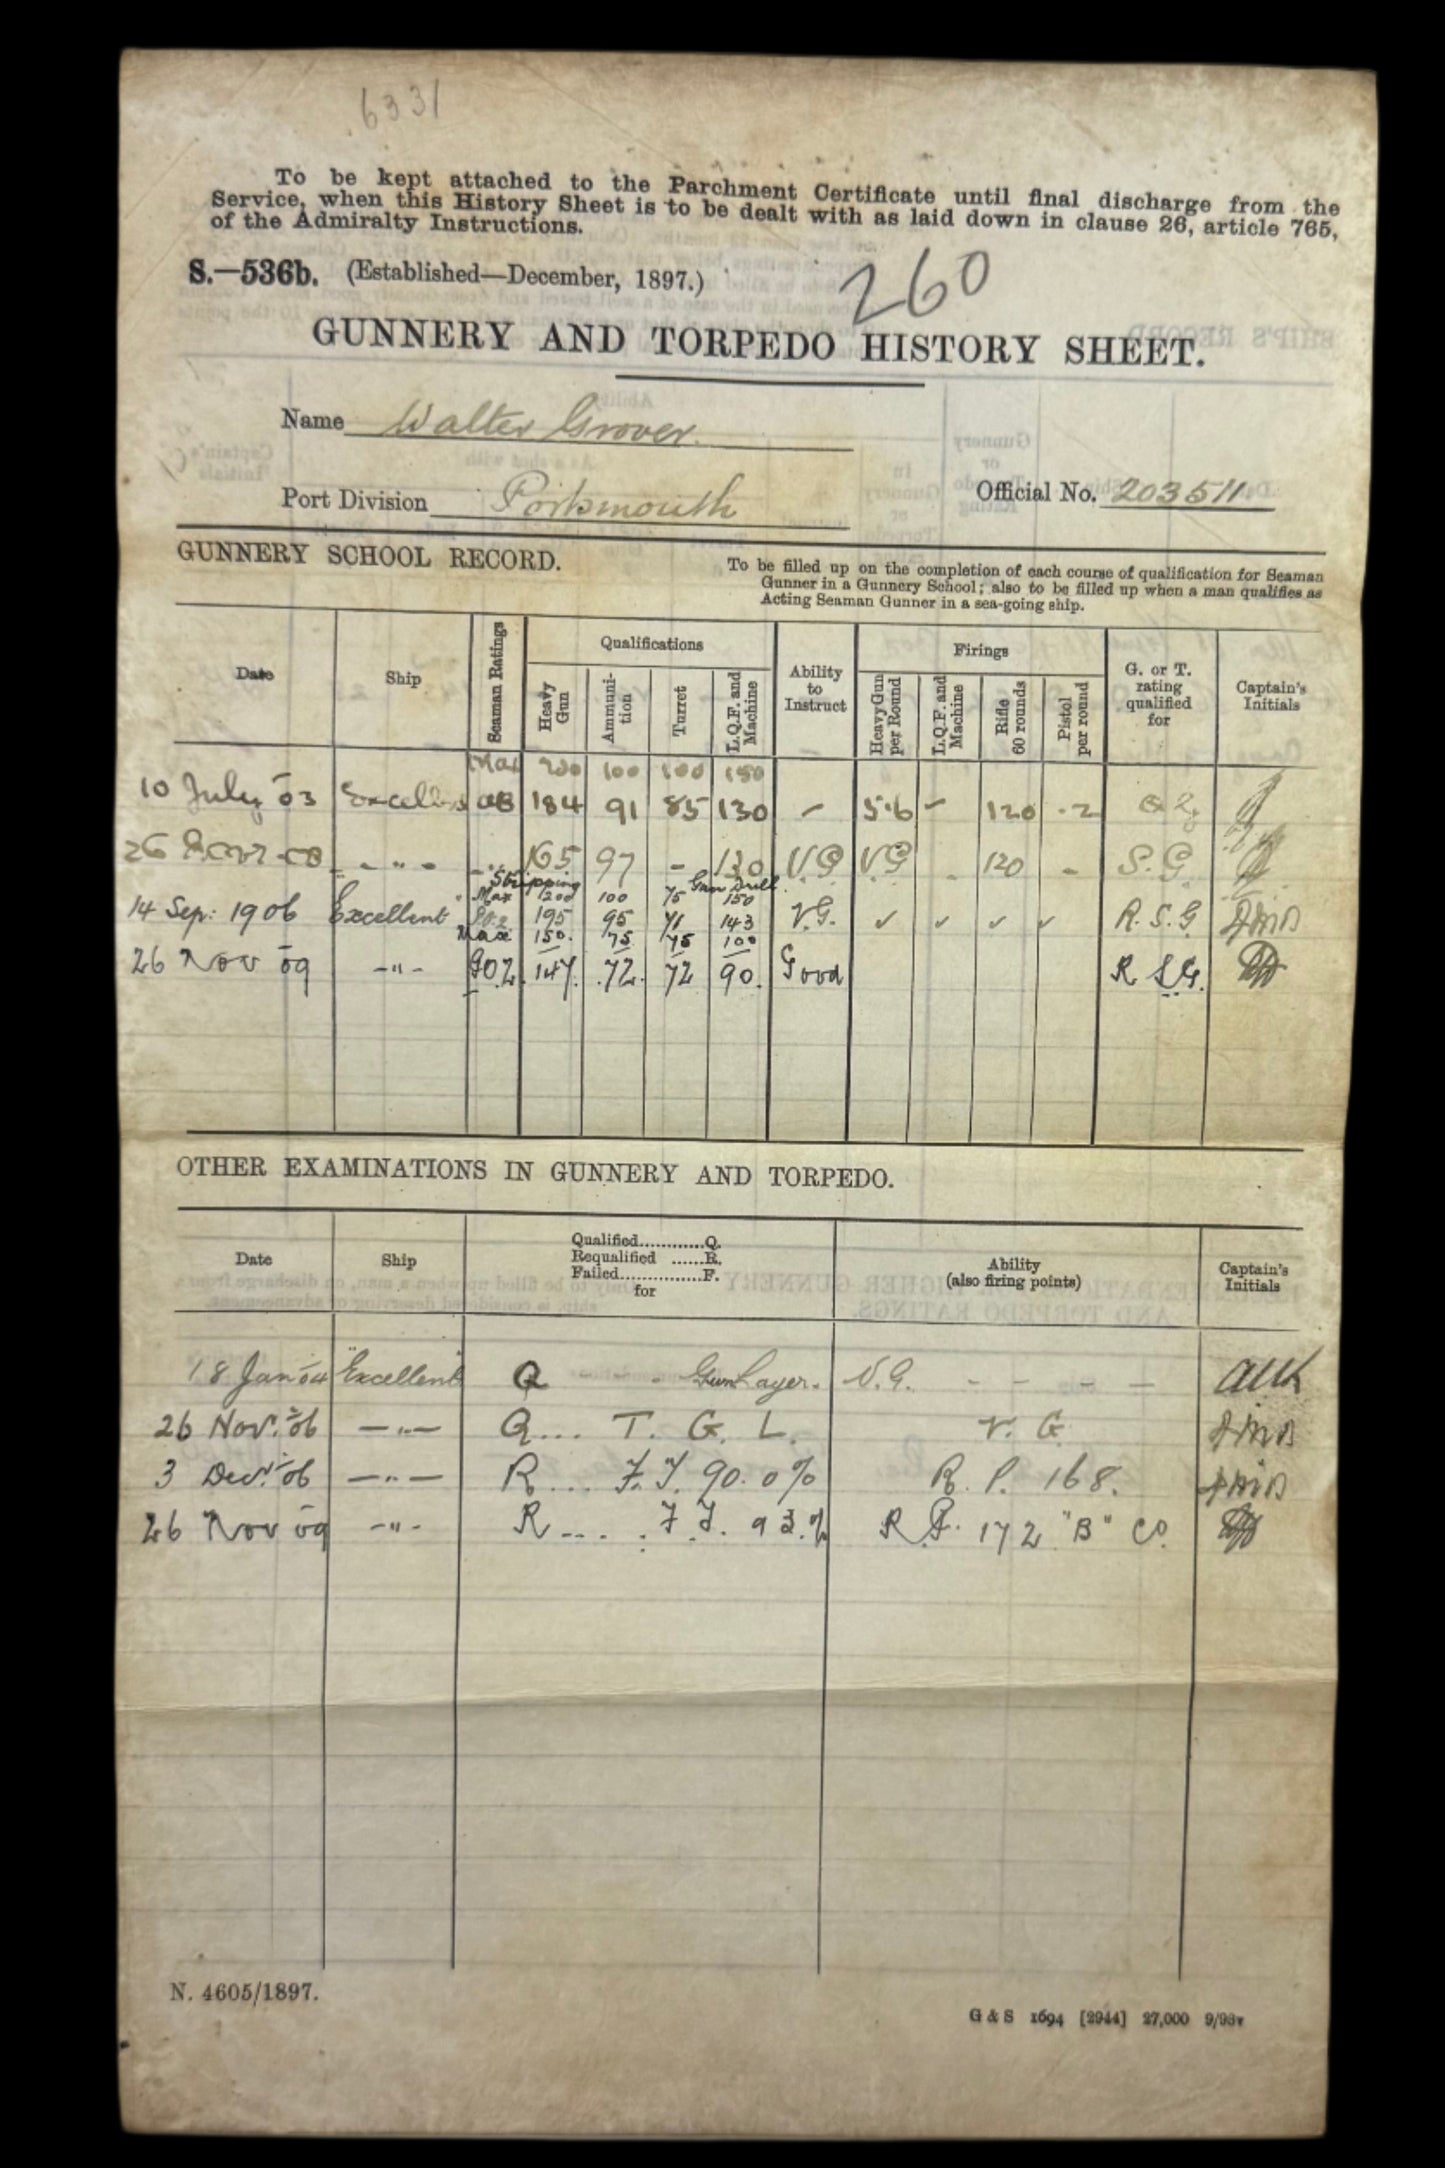 6331
To be kept attached to the Parchment Certificate until final discharge from the
Service, when this History Sheet is to be dealt with as laid down in clause 26, article 765,
of the Admiralty Instructions.
S.—536b. (Established—December, 1897.)
260
GUNNERY AND TORPEDO HISTORY SHEET.
Name Walter Grover.
Port Division Portsmouth Official No. 203511
GUNNERY SCHOOL RECORD.
To be filled up on the completion of each course of qualification for Seaman
Gunner in a Gunnery School; also to be filled up when a man qualifies as
Acting Seaman Gunner in a sea-going ship.
Date Ship Seaman Ratings Qualifications Ability to Instruct Firings G. or T. rating qualified for Captain's Initials
Heavy Gun Ammunition Turret L.Q.F. and Machine Heavy Gun per Round L.Q.F. and Machine Rifle 60 rounds Pistol per round
Max 200 100 100 150
10 July 03 Excellent AB 184 91 85 130 - 5.6 - 120 .2
26 - " - 165 97 - 130 V.G V.G - 120 - S.G.
Stripping Gun Drill
Max 1200 100 75 150
14 Sep: 1906 Excellent 195 95 71 143 V.G. ✓ ✓ ✓ ✓ R.S.G
Max 150. 75 75 100
26 Nov 09 -"- 147. 72. 72 90. Good R S.G.
OTHER EXAMINATIONS IN GUNNERY AND TORPEDO.
Date Ship Qualified............Q. Ability Captain's
Requalified ......R. (also firing points) Initials
Failed................F.
for
18 Jan 04 "Excellent" Q - - - Gun Layer. V.G. - - - -
26 Nov. 06 —"— Q... T. G. L. V. G.
3 Dec. 06 —"— R... F.T. 90.0% R. P. 168.
26 Nov 09 -"- R.... F.T. 93.% R.P. 172 "B" Co.
N. 4605/1897.
G & S 1694 [2944] 27,000 9/98